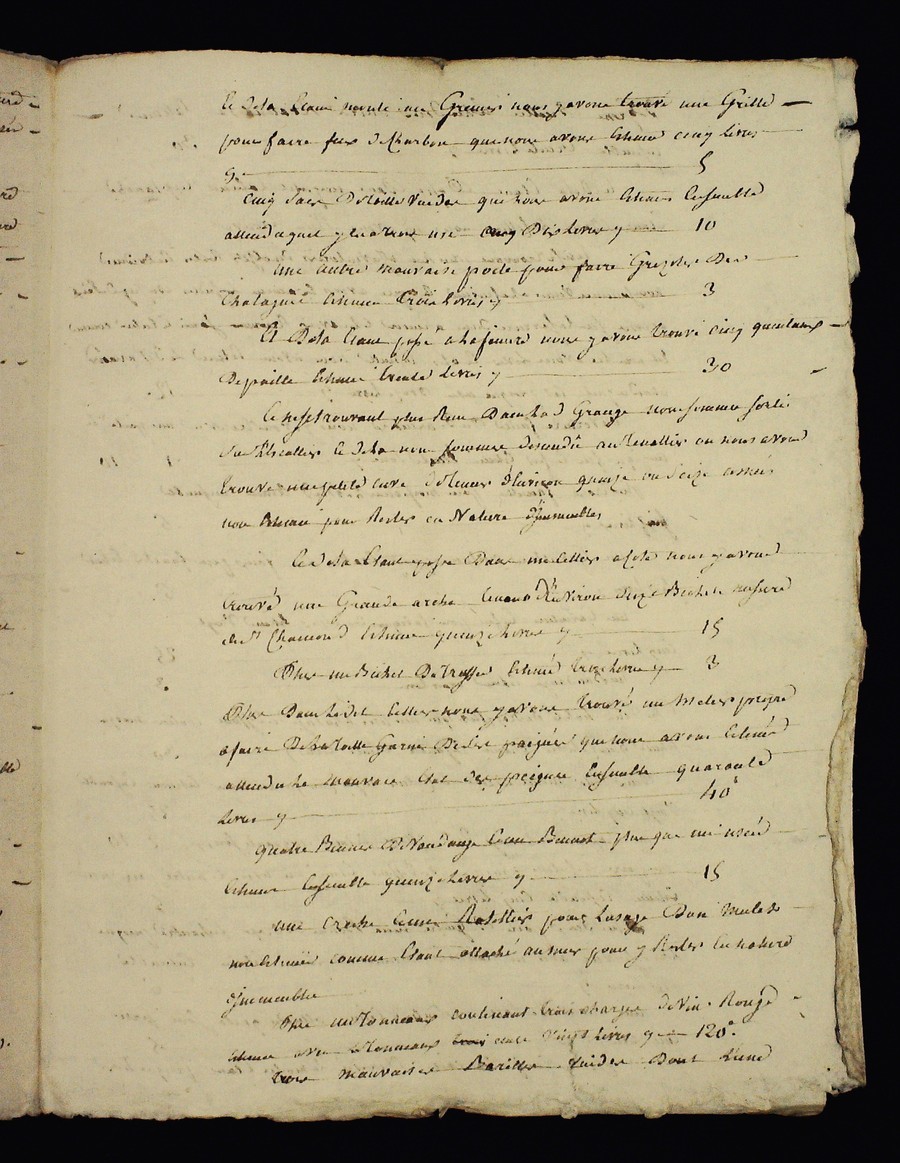 Et de la Etant monté au Grenier nous y avons trouvé une Grille
pour faire feu de Charbon que nous avons Estimé cinq livres
Cy 5
Cinq sacs De toille vuides que nous avons Estimés Ensemble
attendu quil y en a une usé Dix livres Cy 10
Une autre mauvaise poele pour faire Grezoler Des
Chataignes Estimée Trois livres Cy 3
Et De la Etant passé a la feniere nous y avons trouvé cinq quintaux
De paille Estimée trente livres Cy 30
Et ne se trouvant plus Rien Dans lad Grange nous sommes sortis
et de la nous sommes descendu au Cellier ou nous avons
trouvé une petite cuve d'Environ quinze ou seize années
non Estimée pour Rester En Nature d'Immeubles
Et de la Etant passé Dans un cellier a coté nous y avons
trouvé une Grande arche tenant d'Environ seize Bichets mesure
de St Chamond Estimée quinze livres Cy 15
Plus un Bichet De Estimé trois livres Cy 3
Plus Dans le dit Cellier nous y avons trouvé un Metier propre
a faire De la toille Garni De ses peignes que nous avons Estimé
attendu le mauvais Etat des peignes Ensemble quarante
livres Cy 40
Quatre Bennes De Vandange plus que mi usées
Estimées Ensemble quinze livres Cy 15
une Creche avec Ratellier pour l'usage D'un Mulet
non Estimée comme Etant attaché au mur pour y Rester En nature
d'Immeuble
Plus un Tonneau contenant trois charges de vin Rouge
Estimé avec le Tonneau cent vingt livres Cy 120
trois mauvaises Barilles vuides Dont l'une